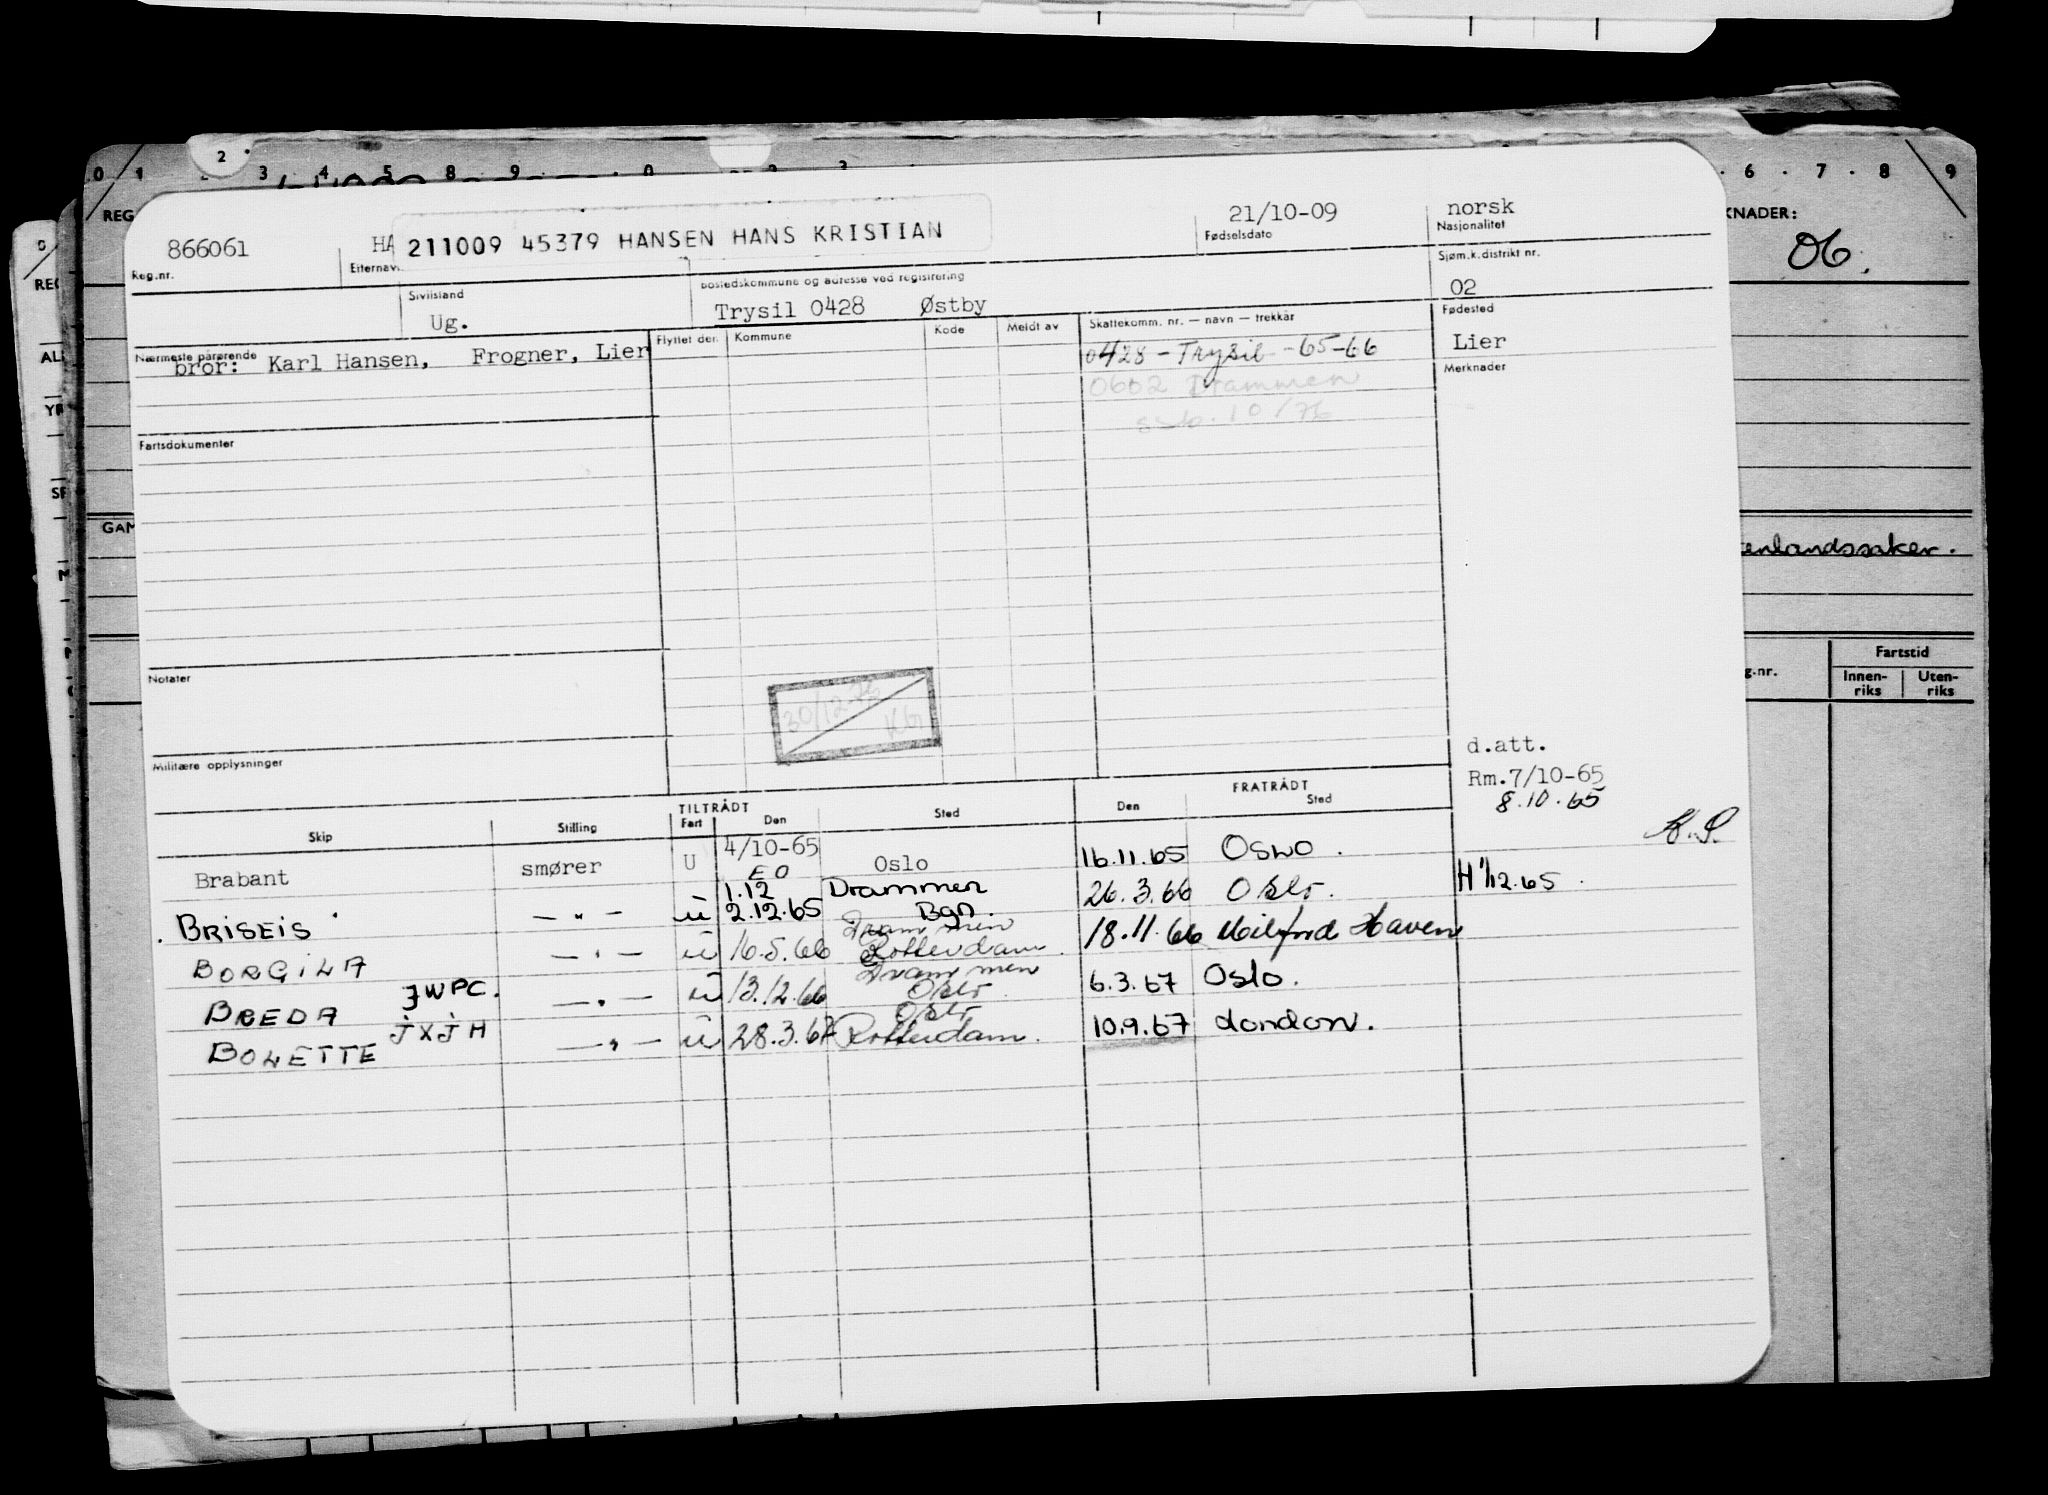 0 1 2 3 4 5 8 9 0 2 3 6 . 7 . 8 . 9
REG
KNADER:
06.
866061
Reg.nr.
HA
Etternavn
211009 45379 HANSEN HANS KRISTIAN
21/10-09
Fødselsdato
norsk
Nasjonalitet
Sivilstand
Ug.
Bostedskommune og adresse ved registrering
Trysil 0428 Østby
Sjøm.k.distrikt nr.
02
Nærmeste pårørende
bror: Karl Hansen, Frogner, Lier
Flyttet den
Kommune
Kode
Meldt av
Skattekomm. nr. — navn — trekkår
0428 - Trysil - 65-66
0602 Drammen
10/76
Fødested
Lier
Merknader
Fartsdokumenter
GAM
enlandssaker.
Notater
30/12-76
KG
Militære opplysninger
g.nr.
Fartstid
Innen-riks
Uten-riks
d.att.
Rm.7/10-65
8.10.65
K.S.
H 1/12.65.
TILTRÅDT
FRATRÅDT
Skip Stilling Fart Den Sted Den Sted
Brabant smører U 4/10-65 Oslo 16.11.65 Oslo.
EO
1.12 Drammen
BRISEIS — " — ü 2.12.65 Bgn. 26.3.66 Oslo.
Drammen
BORGILA — " — ü 16.5.66 Rotterdam. 18.11.66 Milford Haven
Drammen
BREDA JWPC. — " — ü 13.12.66 Oslo 6.3.67 Oslo.
Oslo
BOLETTE JXJH — " — ü 28.3.67 Rotterdam. 10.9.67 London.